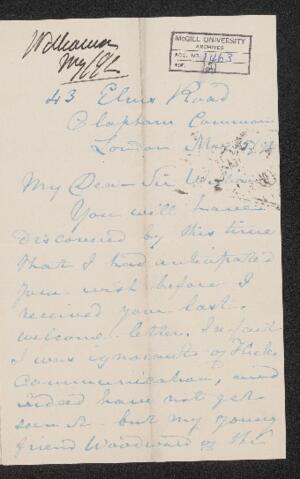 Williamson
McGILL UNIVERSITY
ARCHIVES
ACC. NO. 1463
REF.
43 Elms Road
Clapham Common
London May
My Dear Sir William
You will have
discovered by this time
that I had anticipated
your wish before I
received your last
welcome letter. In fact
I was ignorant of Hicks
Communication, and
indeed have not yet
seen it - but my young
friend Woodward of the